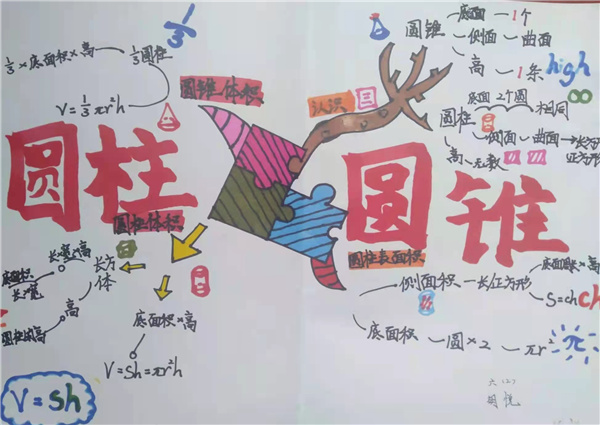 圆柱
圆锥
圆锥体积
1/3圆柱
1/3×底面积×高
V=1/3πr²h
1/3
认识
圆锥
底面 1个
侧面 曲面
高 1条
high
圆柱
底面 2个圆 相同
侧面 曲面
长方形
正方形
高 无数
∞
圆柱体积
长方体
长×宽×高
底面积
长×宽
高
圆柱的高
底面积×高
V=Sh=πr²h
V=Sh
圆柱表面积
侧面积 长/正方形
底面周长×高
S=ch
底面积 圆×2 πr²
π
六(2)